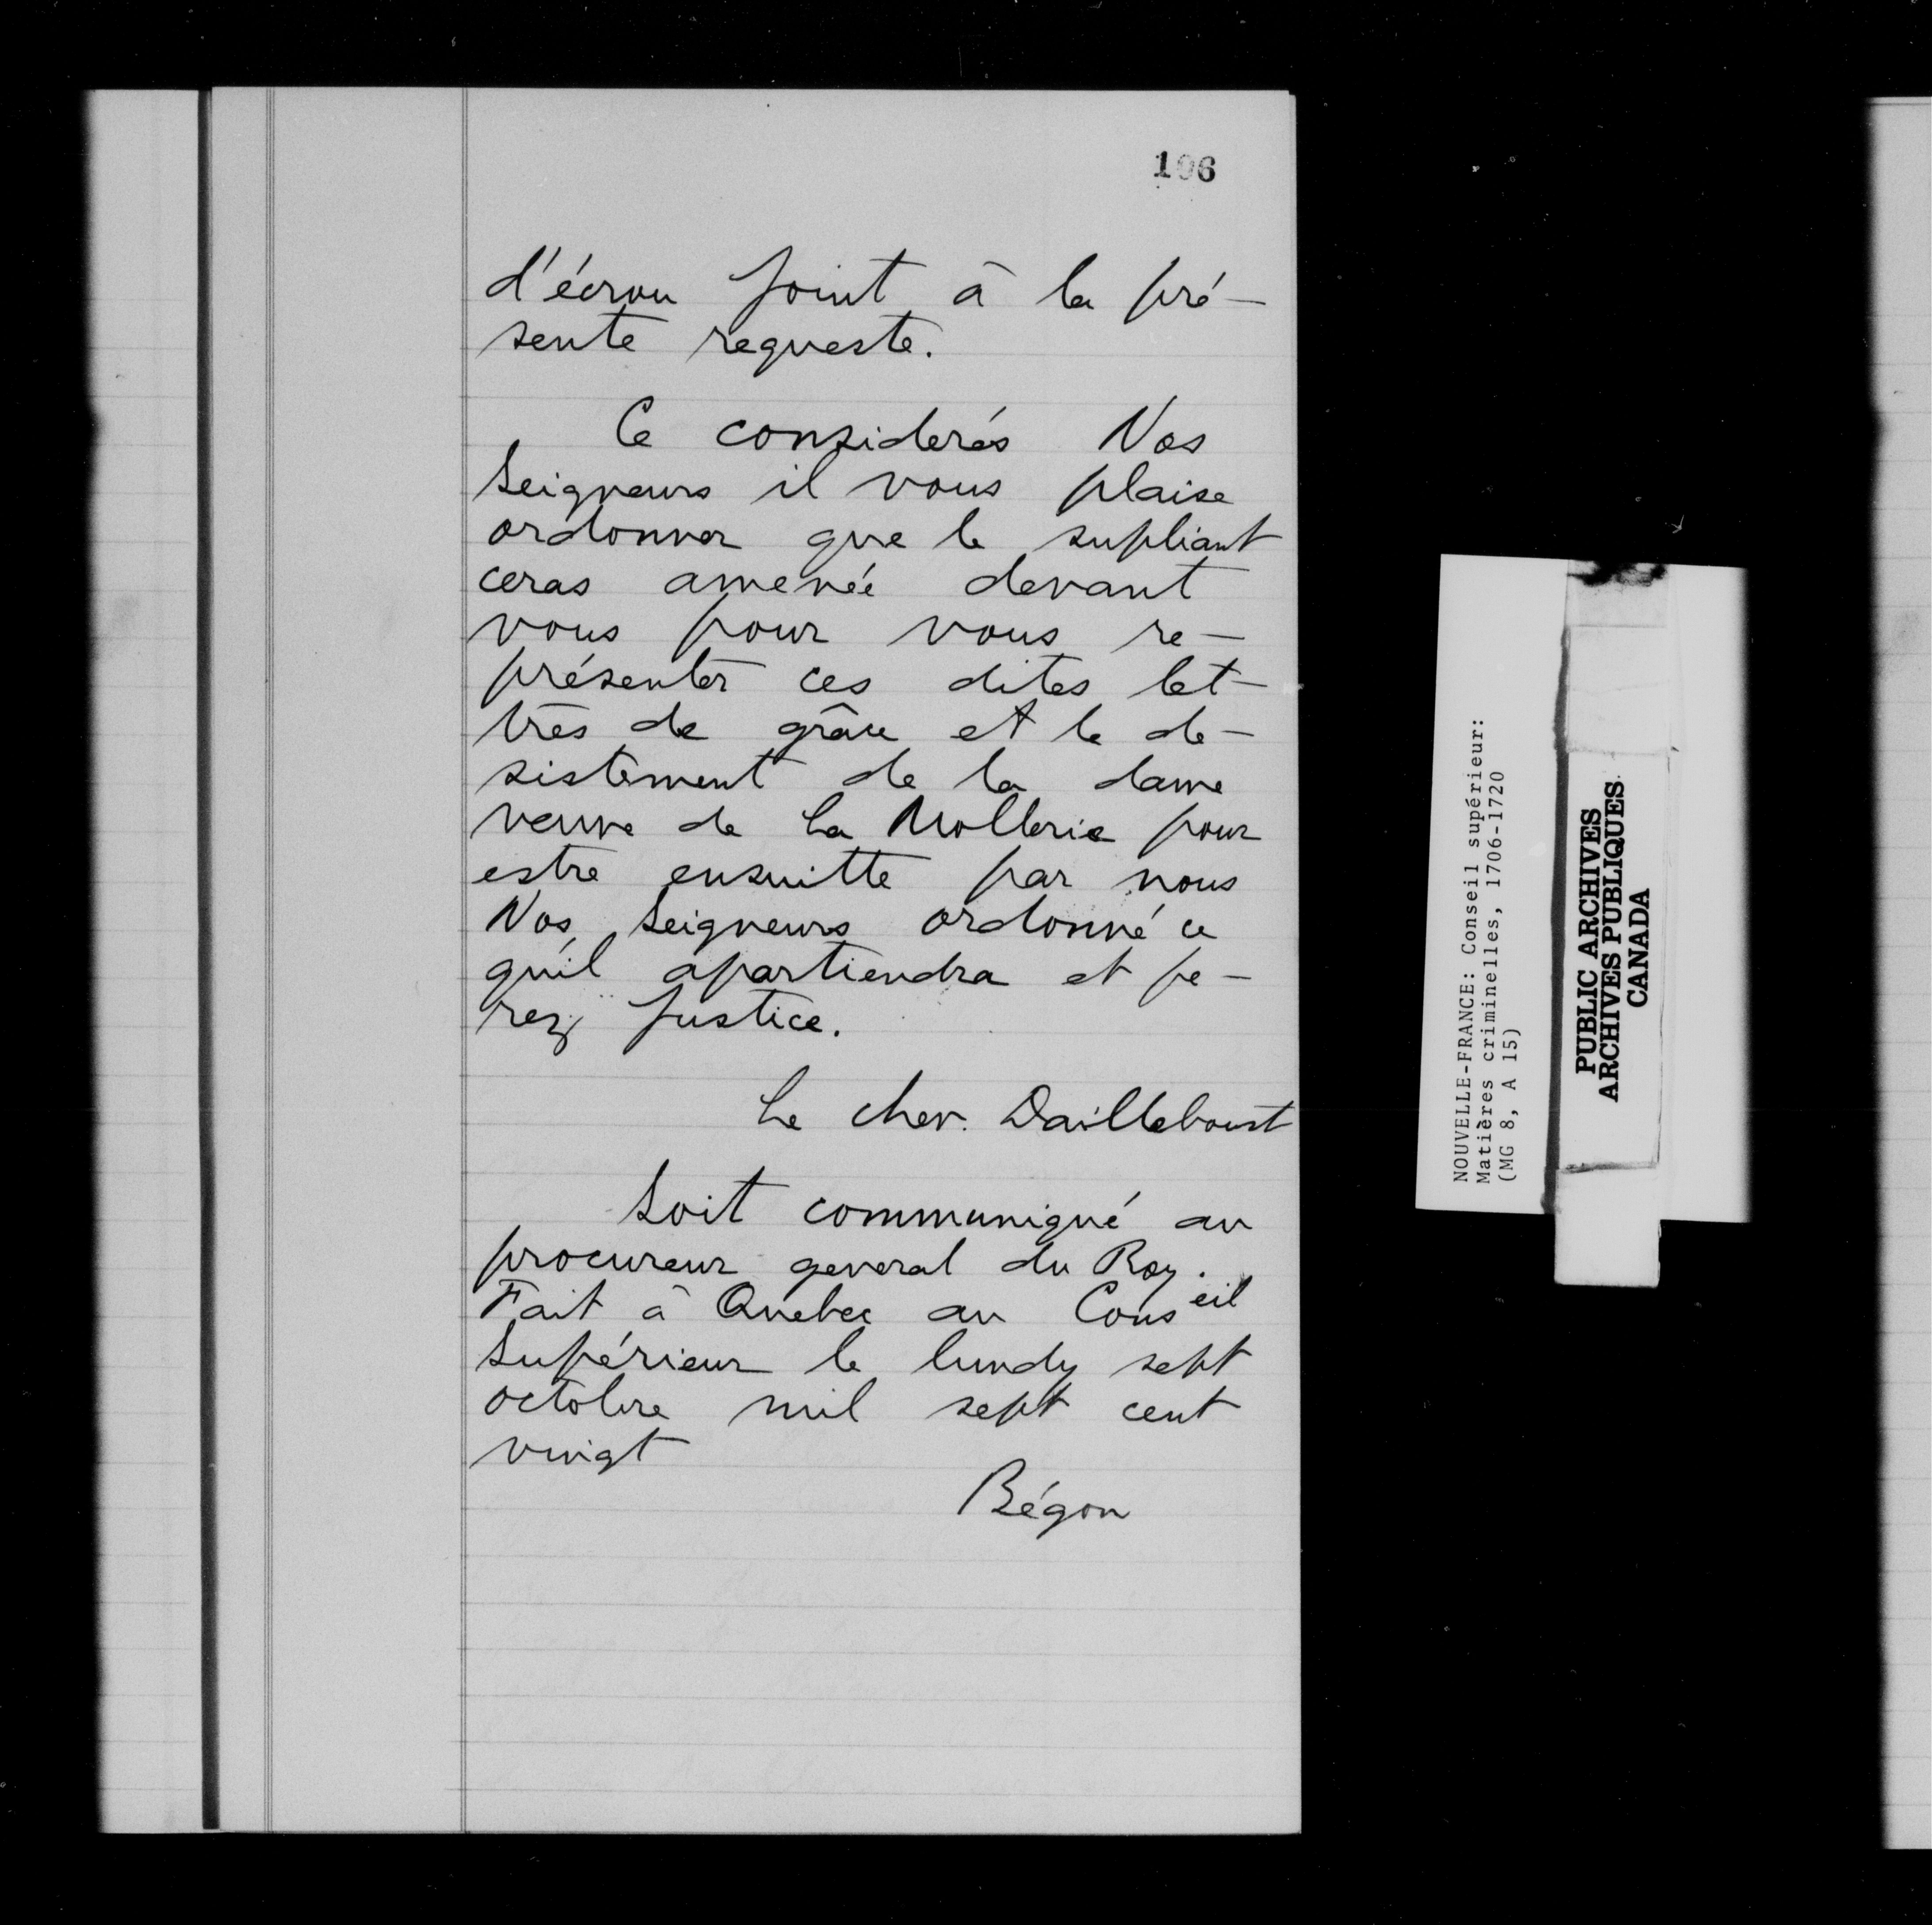 196
d'écrou joint à la pré-
sente requeste.
Ce considerés Nos
Seigneurs il vous plaise
ordonner que le supliant
ceras amenée devant
vous pour vous re-
présenter ces dites let-
tres de grâce et le de-
sistement de la dame
veuve de La Mollerie pour
estre ensuitte par nous
Nos Seigneurs ordonné ce
qu'il apartiendra et fe-
rez justice.
Le cher. Dailleboust
Soit communiqué au
procureur general du Roy.
Fait à Quebec au Conseil
Supérieur le lundy sept
octobre mil sept cent
vingt
Bégon
NOUVELLE-FRANCE: Conseil supérieur:
Matières criminelles, 1706-1720
(MG 8, A 15)
PUBLIC ARCHIVES
ARCHIVES PUBLIQUES
CANADA